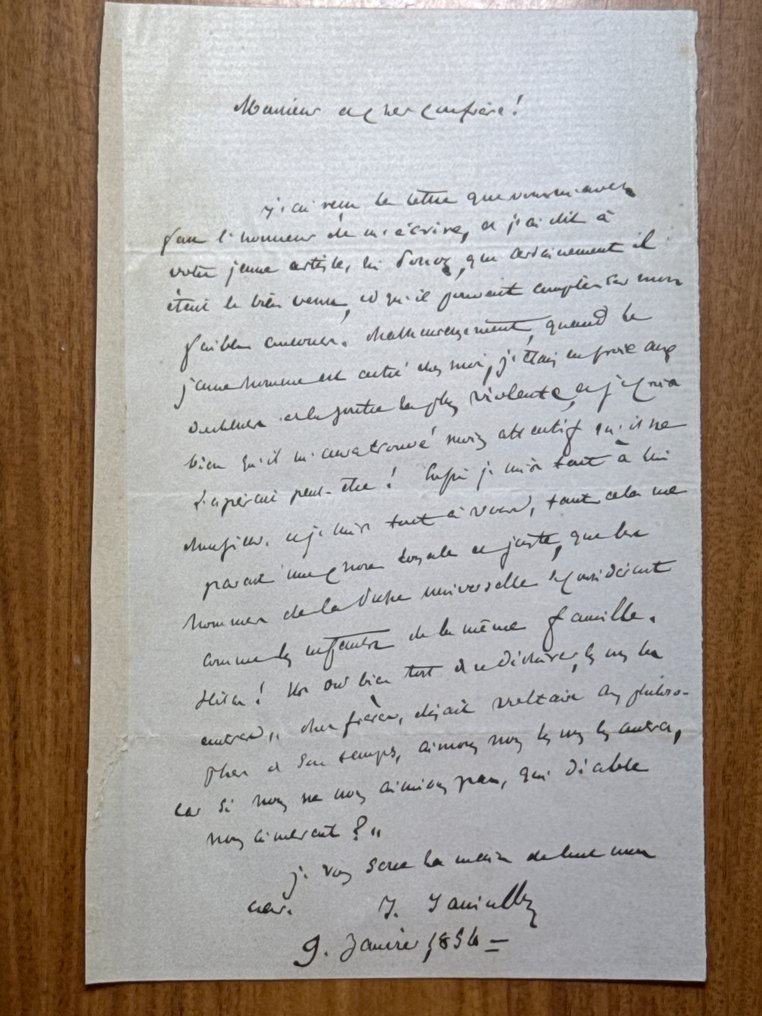 Monsieur et cher confrère!
j'ai reçu la lettre que vous m'avez
fait l'honneur de m'écrire, et j'ai dit à
votre jeune artiste, que certainement il
était le bien venu, et qu'il pouvait compter sur mon
faible concours. Malheureusement, quand le
jeune homme est entré chez moi, j'étais en proie aux
douleurs de la goutte la plus violente, et j'
bien qu'il m'aura trouvé moins attentif qu'il ne
peut-être! Enfin je suis tout à lui
et je suis tout à vous, tout cela me
parait une chose loyale et juste, que les
hommes de la universelle se considèrent
comme les enfants de la même famille.
Hélas! Ils ont bien tort de se déchirer, les uns les
autres,, chers frères, disait Voltaire aux philoso-
phes de son temps, aimons nous les uns les autres,
car si nous ne nous aimions pas, qui diable
nous aimerait?,,
je vous serre la main de tout mon
cœur. J. Janin
9. Janvier, 1854